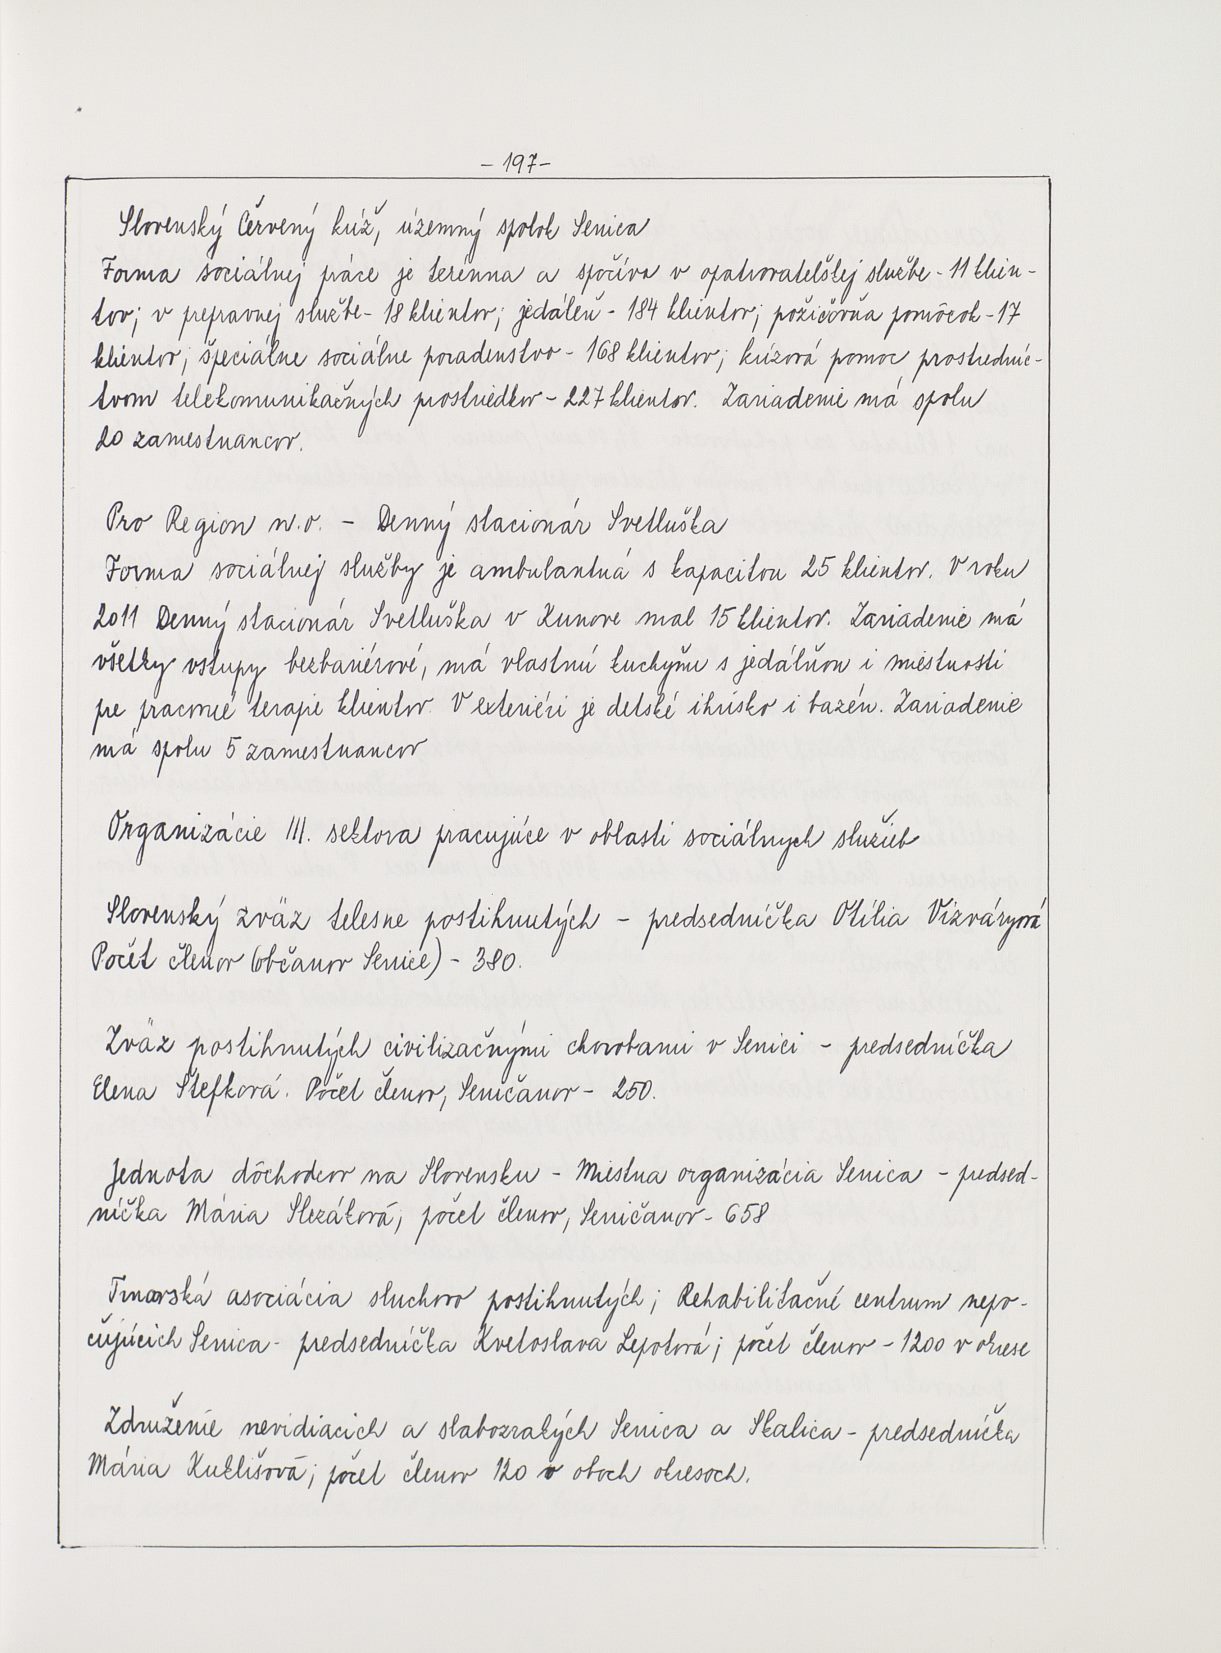 - 197 -
Slovenský Červený kríž, územný spolok Senica
Forma sociálnej práce je terénna a spočíva v opatrovateľskej službe - 11 klien-
tov; v prepravnej službe - 18 klientov; jedáleň - 184 klientov; požičovňa pomôcok - 17
klientov; špeciálne sociálne poradenstvo - 168 klientov; krízová pomoc prostredníc-
tvom telekomunikačných prostriedkov - 227 klientov. Zariadenie má spolu
20 zamestnancov.
Pro Region n.o. - Denný stacionár Svetluška
Forma sociálnej služby je ambulantná s kapacitou 25 klientov. V roku
2011 Denný stacionár Svetluška v Kunove mal 15 klientov. Zariadenie má
všetky vstupy bezbariérové, má vlastnú kuchyňu s jedálňou i miestnosti
pre pracovné terapie klientov. V exteriéri je detské ihrisko i bazén. Zariadenie
má spolu 5 zamestnancov
Organizácie III. sektora pracujúce v oblasti sociálnych služieb
Slovenský zväz telesne postihnutých - predsedníčka Otília Vizváryová
Počet členov (občanov Senice) - 380.
Zväz postihnutých civilizačnými chorobami v Senici - predsedníčka
Elena Štefková. Počet členov, Seničanov - 250.
Jednota dôchodcov na Slovensku - Miestna organizácia Senica - predsed-
níčka Mária Slezáková; počet členov, Seničanov - 658
Trnavská asociácia sluchovo postihnutých; Rehabilitačné centrum nepo-
čujúcich Senica - predsedníčka Kvetoslava Lepotová; počet členov - 1200 v okrese
Združenie nevidiacich a slabozrakých Senica a Skalica - predsedníčka
Mária Kuklišová; počet členov 120 v oboch okresoch.